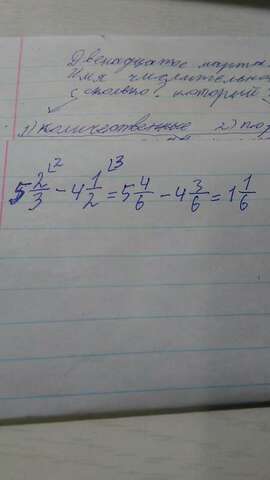 Двенадцатое марта
Имя числительно
(сколько? который?
1) Количественные 2) по
5 2/3 - 4 1/2 = 5 4/6 - 4 3/6 = 1 1/6